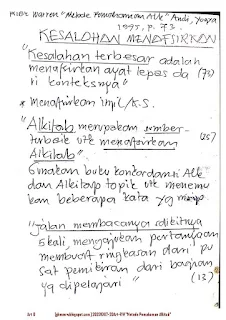 Rick Warren "Metode Pemahaman Alk" Andi, Yogya
1995, p. 73.
KESALAHAN MENAFSIRKAN
"Kesalahan terbesar adalah
menafsirkan ayat lepas da (73)
ri konteksnya"
* Menafsirkan
"Alkitab merupakan sumber
terbaik utk menafsirkan (35)
Alkitab"
Gunakan buku konkordansi Alk
dan Alkitab topik utk menemu
kan beberapa kata yg
"jalan membacanya sdikitnya
5 kali, mengajukan pertanyaan
membuat ringkasan dari pu
sat pemikiran dari bagian
yg dipelajari" (13)